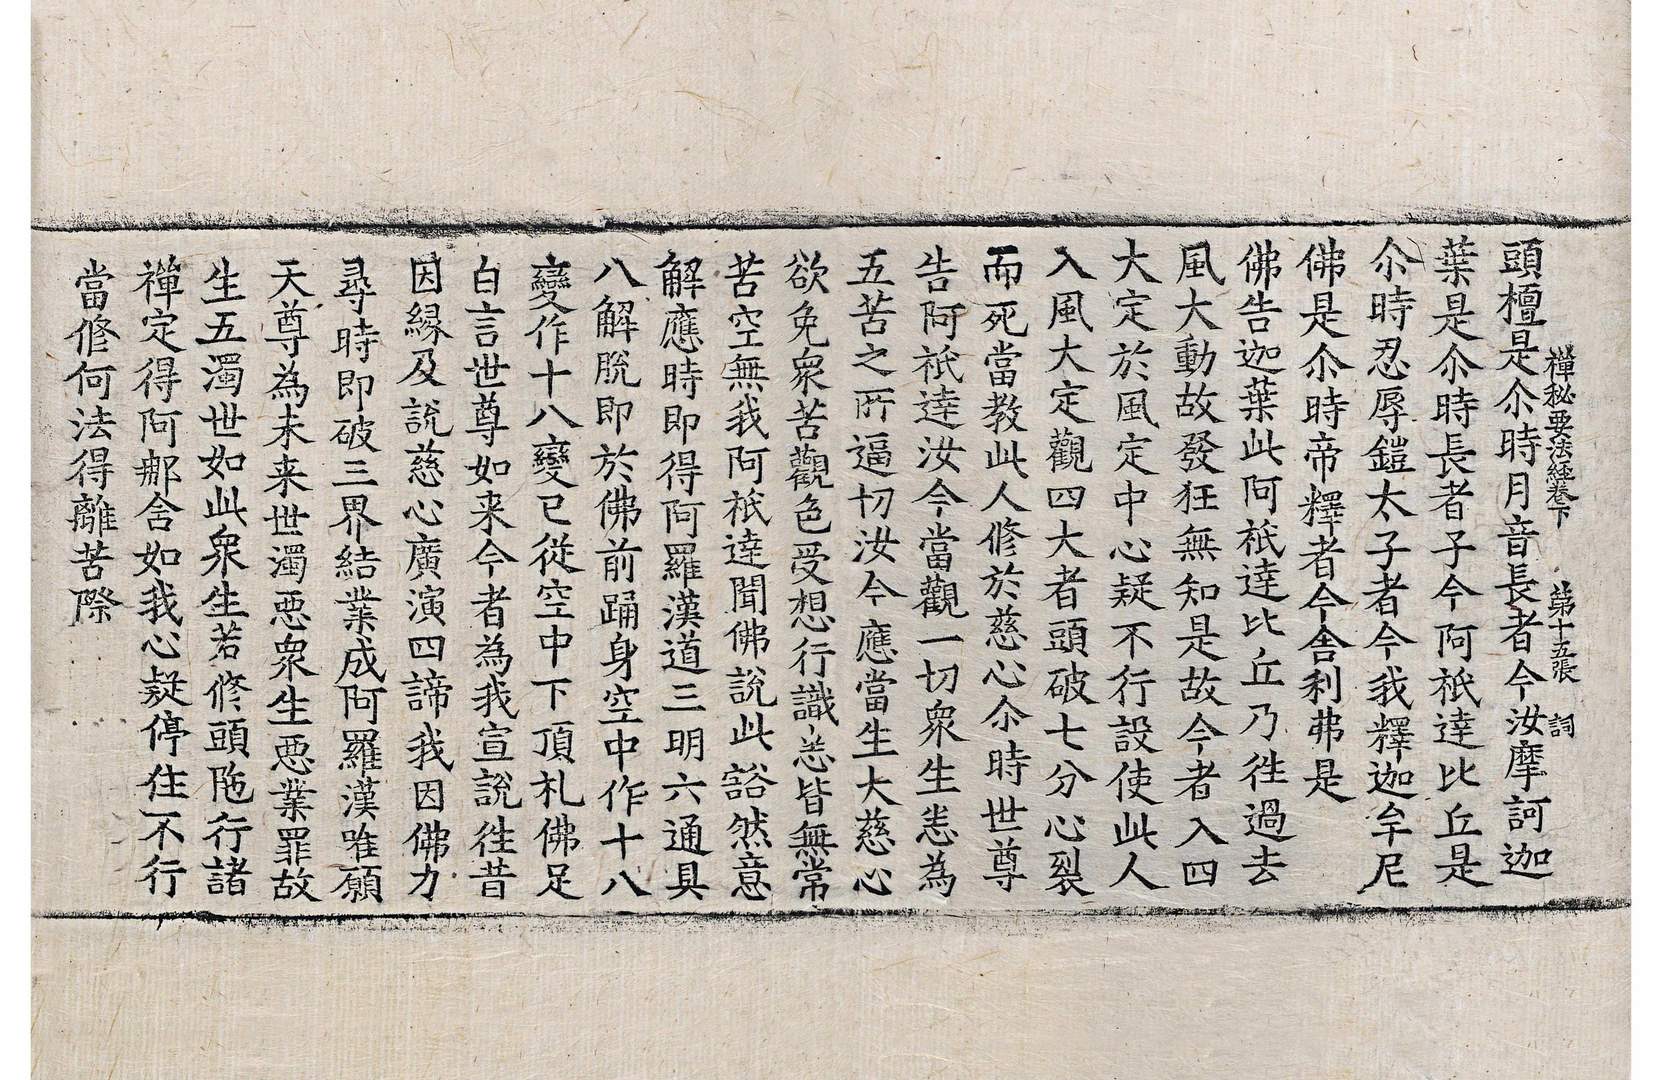 禪秘要法經卷下 第十五張 詞
頭檀是尒時月音長者今汝摩訶迦
葉是尒時長者子今阿祇達比丘是
尒時忍辱鎧太子者今我釋迦牟尼
佛是尒時帝釋者今舍利弗是
佛告迦葉此阿祇達比丘乃徃過去
風大動故發狂無知是故今者入四
大定於風定中心疑不行設使此人
入風大定觀四大者頭破七分心裂
而死當教此人修於慈心尒時世尊
告阿祇達汝今當觀一切衆生恙為
五苦之所逼切汝今應當生大慈心
欲免衆苦觀色受想行識恙皆無常
苦空無我阿祇達聞佛說此豁然意
解應時即得阿羅漢道三明六通具
八解脫即於佛前踊身空中作十八
變作十八變已從空中下頂札佛足
白言世尊如来今者為我宣說徃昔
因縁及說慈心廣演四諦我因佛力
尋時即破三界結業成阿羅漢唯願
天尊為未来世濁惡衆生惡業罪故
生五濁世如此衆生若修頭陁行諸
禪定得阿那含如我心疑停住不行
當修何法得離苦際